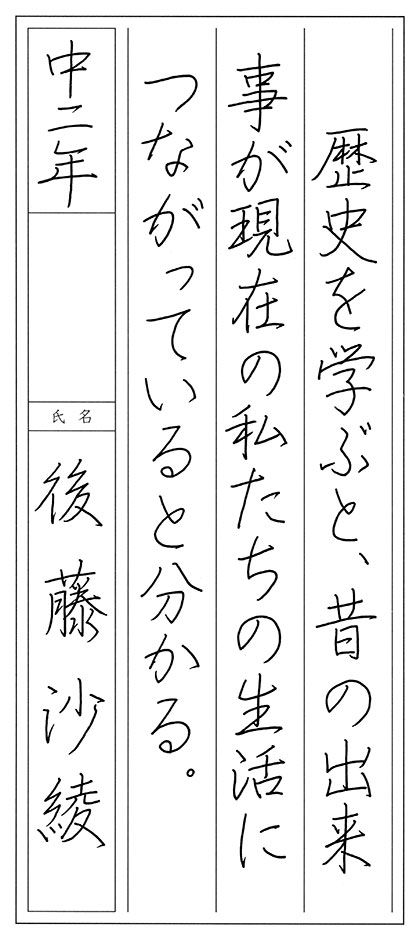 歴史を学ぶと、昔の出来
事が現在の私たちの生活に
つながっていると分かる。
中二年
氏名
後藤沙綾